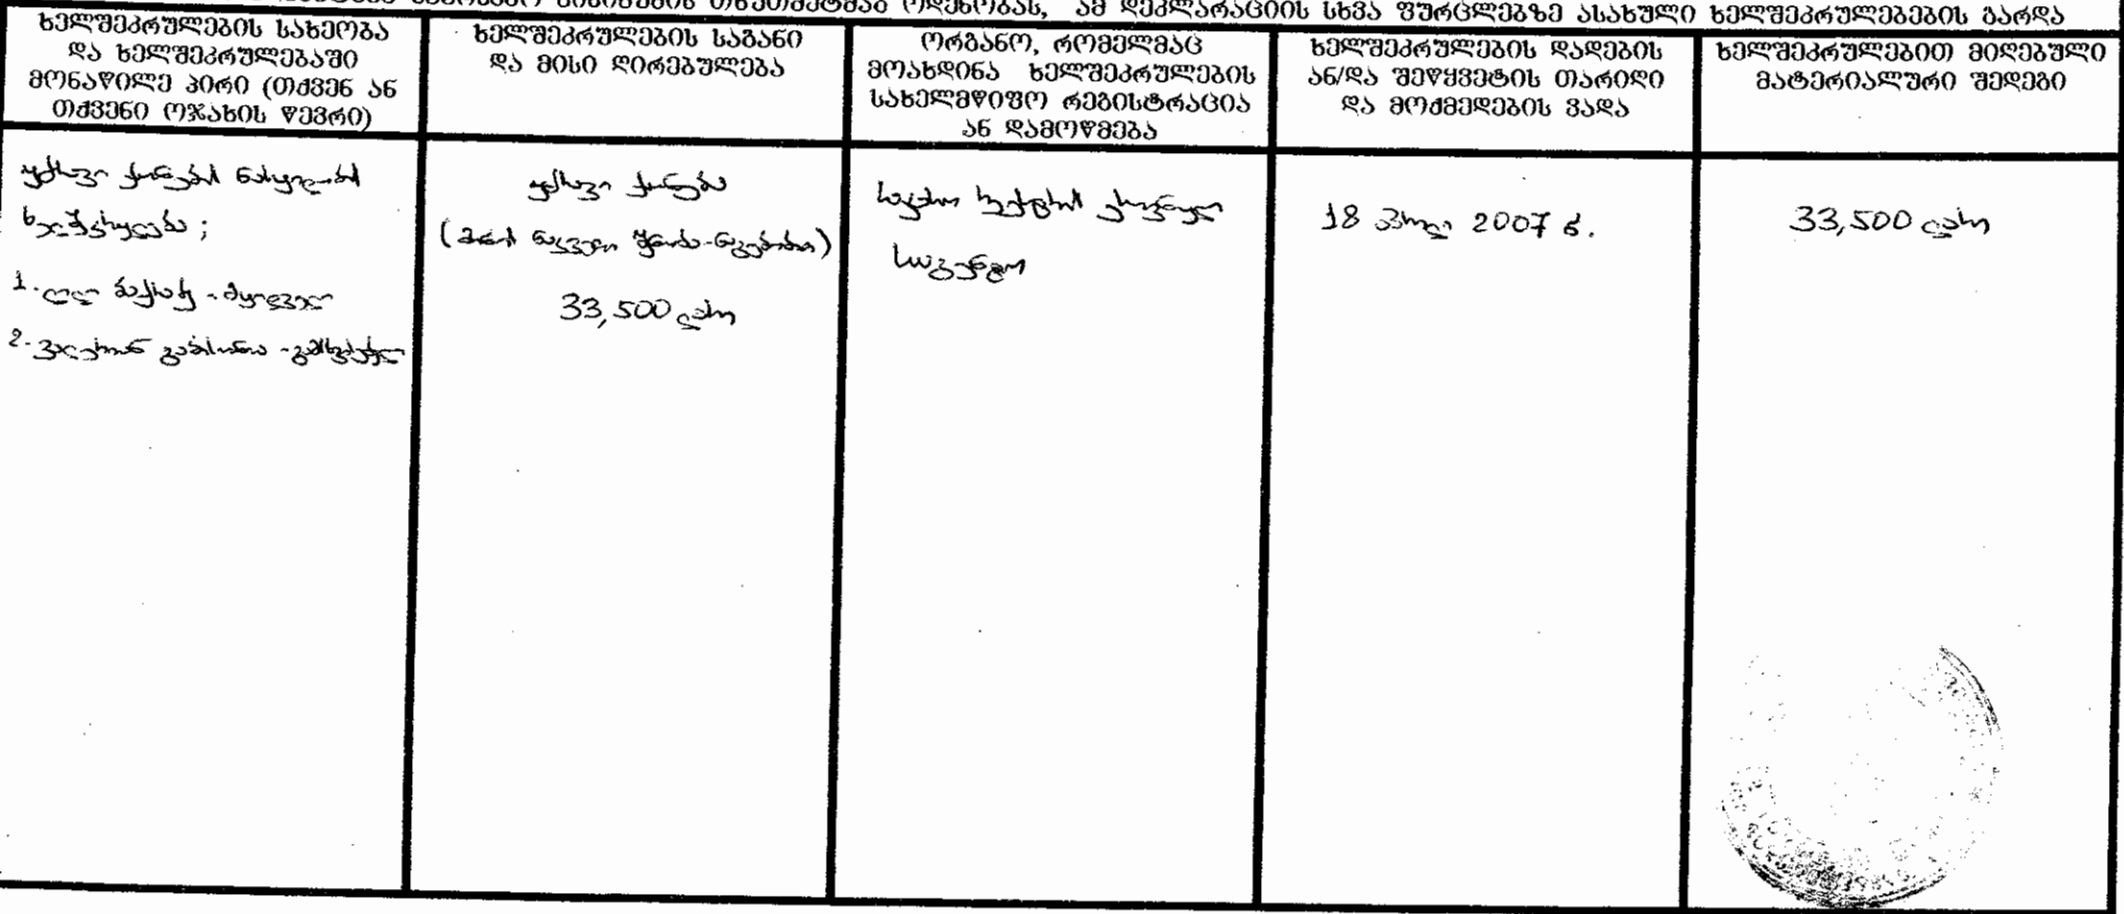 თხუთმეტმაგ ოდენობას, ამ დეკლარაციის სხვა ფურცლებზე ასახული ხელშეკრულებების გარდა
ხელშეკრულების სახეობა
და ხელშეკრულებაში
მონაწილე პირი (თქვენ ან
თქვენი ოჯახის წევრი)
ხელშეკრულების საგანი
და მისი ღირებულება
ორგანო, რომელმაც
მოახდინა ხელშეკრულების
სახელმწიფო რეგისტრაცია
ან დამოწმება
ხელშეკრულების დადების
ან/და შეწყვეტის თარიღი
და მოქმედების ვადა
ხელშეკრულებით მიღებული
მატერიალური შედეგი
უძრავი ქონების ნასყიდობის
ხელშეკრულება;
1. ლელა - მყიდველი
2. - გამსხვისებელი
უძრავი ქონება
(მიწის ნაკვეთი შენობა-ნაგებობით)
33,500 ლარი
საჯარო რეესტრის ეროვნული
სააგენტო
18 2007 წ.
33,500 ლარი